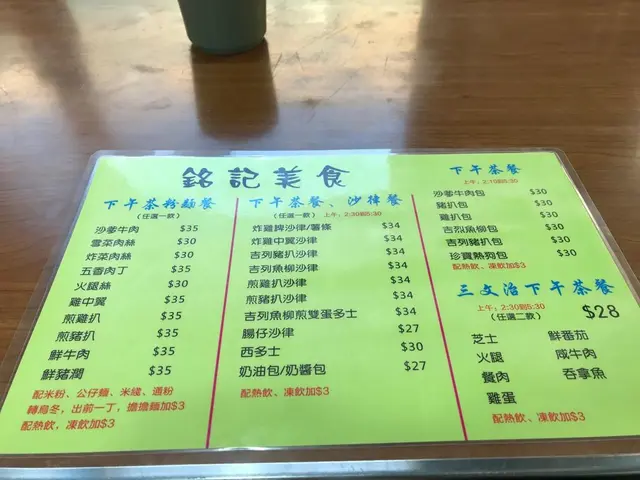 銘記美食
下午茶粉麵餐
(任選一款)
沙爹牛肉 $35
雪菜肉絲 $30
炸菜肉絲 $30
五香肉丁 $35
火腿絲 $30
雞中翼 $35
煎雞扒 $35
煎豬扒 $35
鮮牛肉 $35
鮮豬潤 $35
配米粉、公仔麵、米綫、通粉
轉烏冬，出前一丁，擔擔麵加$3
配熱飲，凍飲加$3
下午茶餐、沙律餐
(任選一款) 上午：2:30到5:30
炸雞髀沙律/薯條 $34
炸雞中翼沙律 $34
吉列豬扒沙律 $34
吉列魚柳沙律 $34
煎雞扒沙律 $34
煎豬扒沙律 $34
吉列魚柳煎雙蛋多士 $34
腸仔沙律 $27
西多士 $30
奶油包/奶醬包 $27
配熱飲、凍飲加$3
下午茶餐
上午：2:10到5:30
沙爹牛肉包 $30
豬扒包 $30
雞扒包 $30
吉烈魚柳包 $30
吉列豬扒包 $30
珍寶熱狗包 $30
配熱飲，凍飲加$3
三文治下午茶餐
上午：2:30到5:30 $28
(任選二款)
芝士 鮮番茄
火腿 咸牛肉
餐肉 吞拿魚
雞蛋
配熱飲、凍飲加$3